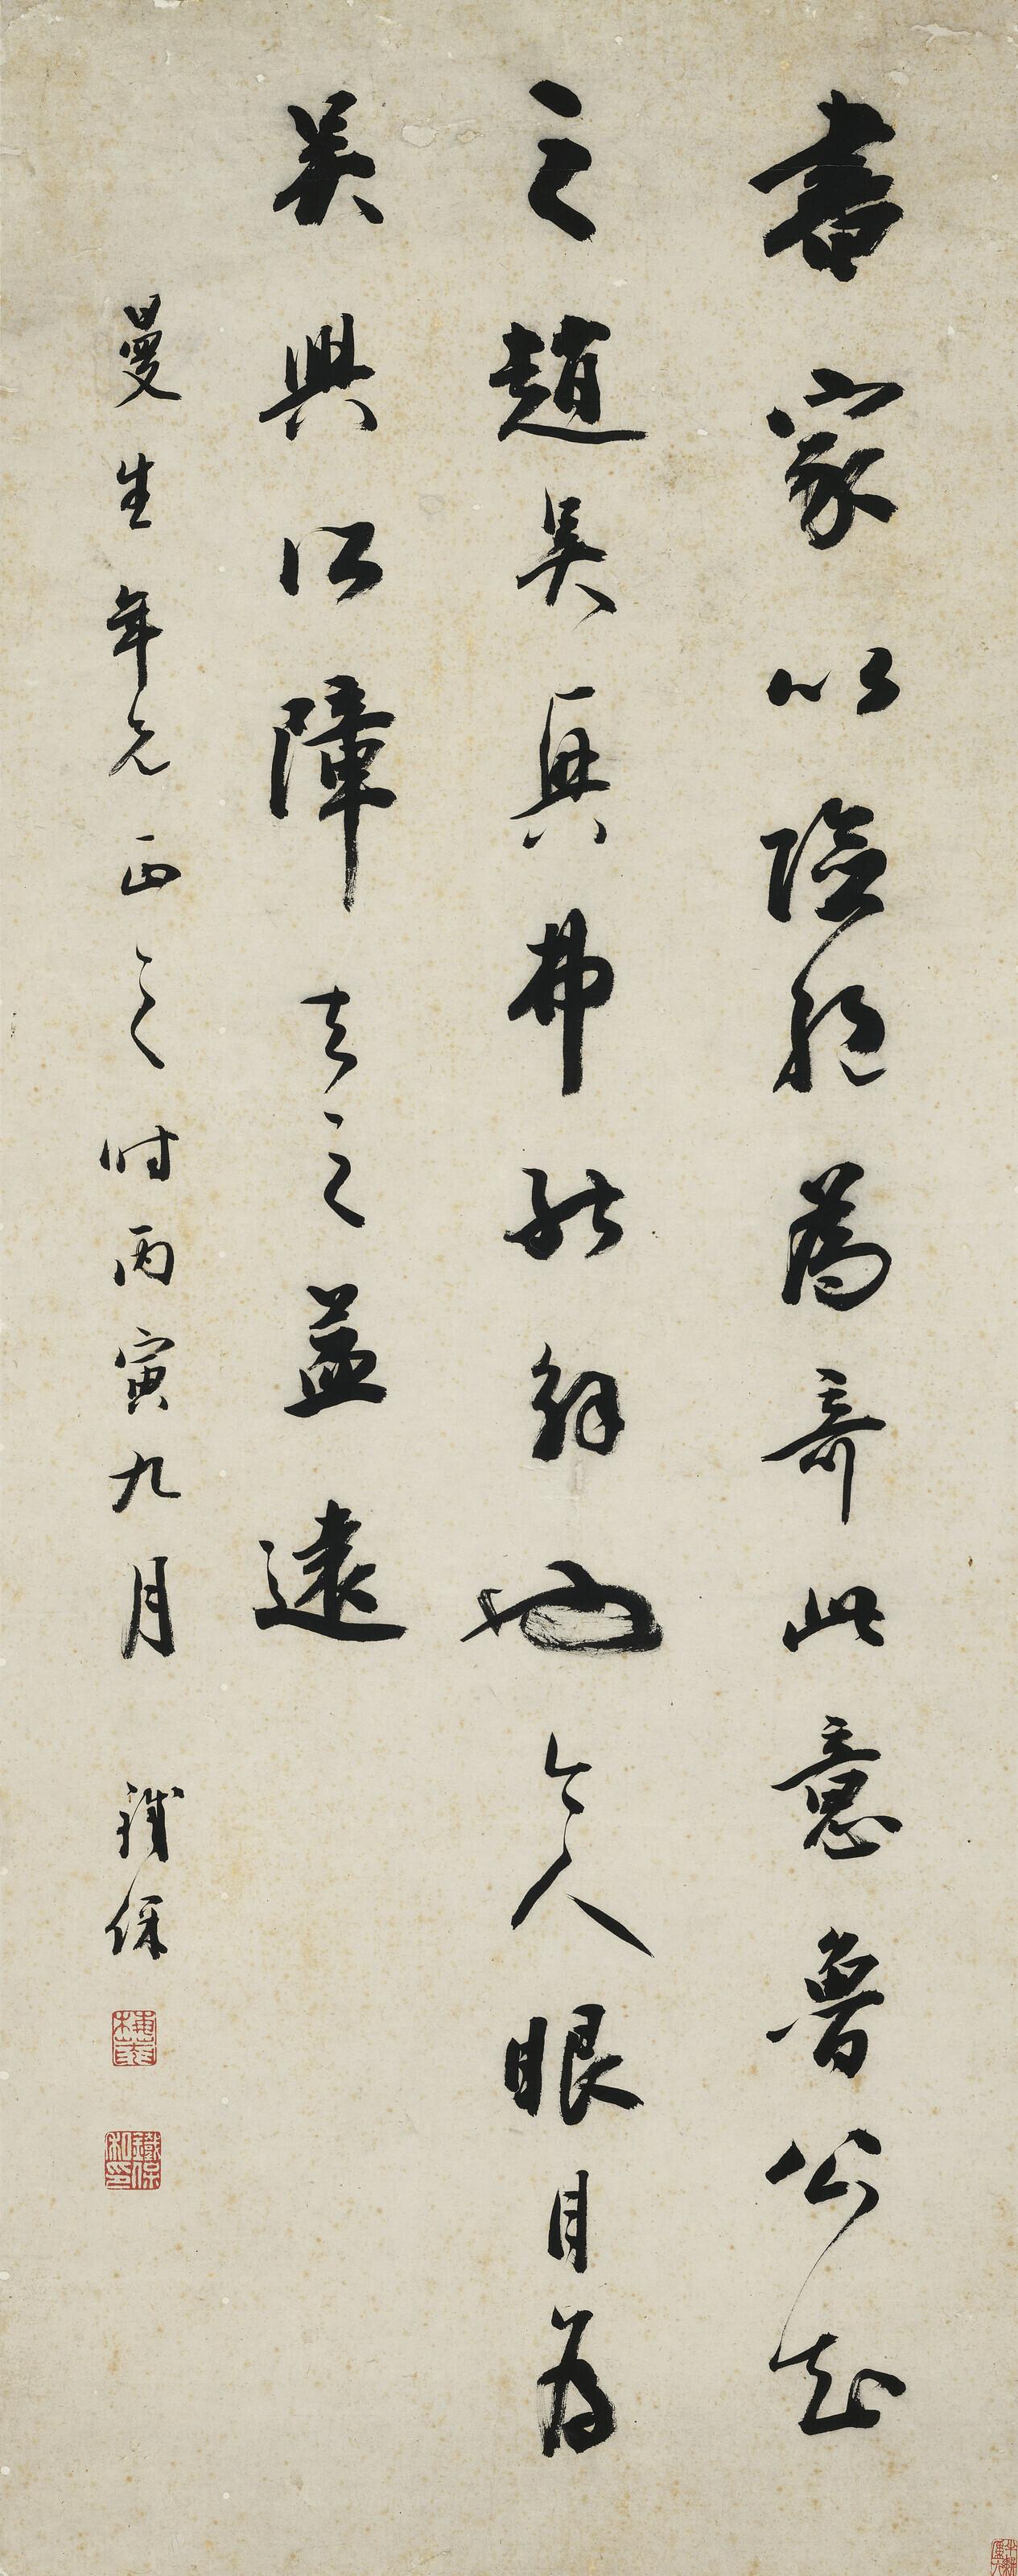 書家以險絕為奇此意魯公知
之趙吳興弗能解也今人眼目為
吳興所障去之益遠
曼生年兄正之時丙寅九月 鐵保
梅庵
鐵保私印